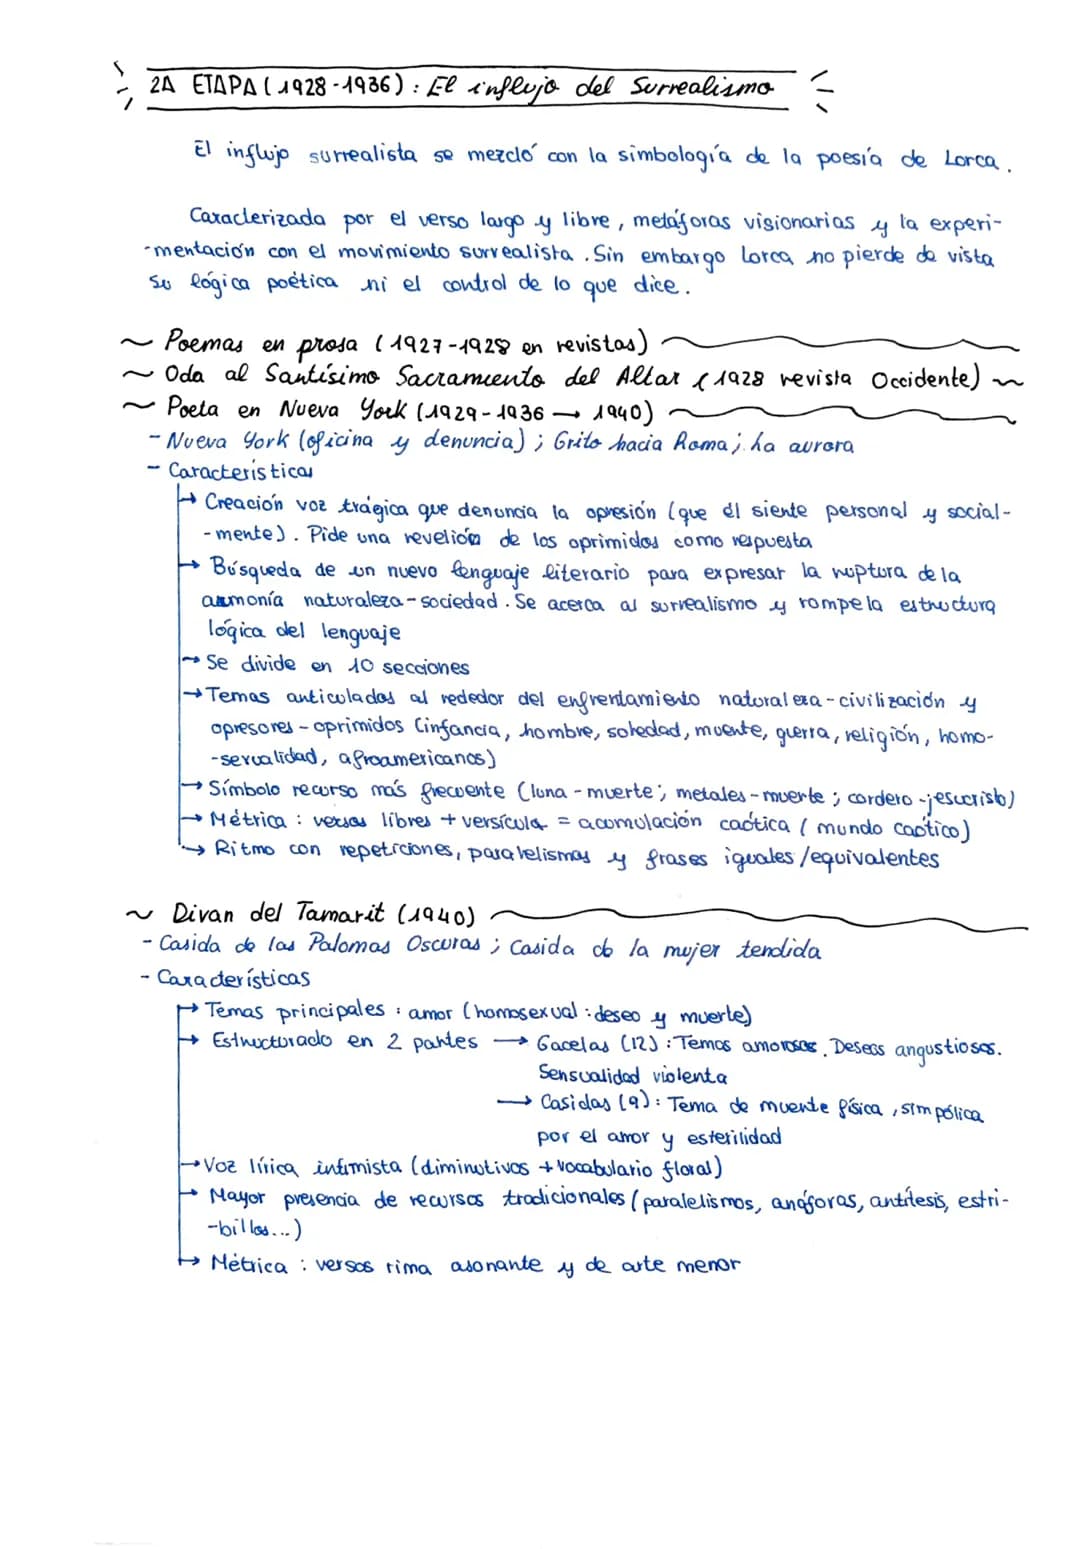 2A ETAPA (1928-1936): El influjo del Surrealismo
El influjo surrealista se mezcló con la simbología de la poesía de Lorca.
Caracterizada por el verso largo y libre, metáforas visionarias y la experi-
-mentación con el movimiento surrealista. Sin embargo Lorca no pierde de vista
su lógica poética ni el control de lo que dice.
~ Poemas en prosa (1927-1928 en revistas)
~ Oda al Santísimo Sacramento del Altar (1928 revista Occidente) ~
~ Poeta en Nueva York (1929-1936 → 1940)
- Nueva York (oficina y denuncia); Grito hacia Roma; La aurora
- Características
→ Creación voz trágica que denuncia la opresión (que él siente personal y social-
-mente). Pide una revelión de los oprimidos como respuesta
→ Búsqueda de un nuevo lenguaje literario para expresar la ruptura de la
armonía naturaleza-sociedad. Se acerca al surrealismo y rompe la estructura
lógica del lenguaje
→ Se divide en 10 secciones
→ Temas articulados al rededor del enfrentamiento naturaleza-civilización y
opresores-oprimidos (infancia, hombre, soledad, muerte, guerra, religión, homo-
-sexualidad, afroamericanos)
→ Símbolo recurso más frecuente (luna-muerte; metales-muerte; cordero-jesucristo)
→ Métrica: versos libres + versícula = acomulación caótica (mundo caótico)
→ Ritmo con repeticiones, paralelismos y frases iguales/equivalentes
~ Divan del Tamarit (1940)
- Casida de las Palomas Oscuras; Casida de la mujer tendida
- Características
→ Temas principales: amor (homosexual: deseo y muerte)
→ Estructurado en 2 partes → Gacelas (12): Temas amorosos. Deseos angustiosos.
Sensualidad violenta
→ Casidas (9): Tema de muerte física, simpólica
por el amor y esterilidad
→ Voz lírica intimista (diminutivos + vocabulario floral)
→ Mayor presencia de recursos tradicionales (paralelismos, anáforas, antítesis, estri-
-billos...)
→ Métrica: versos rima asonante y de arte menor